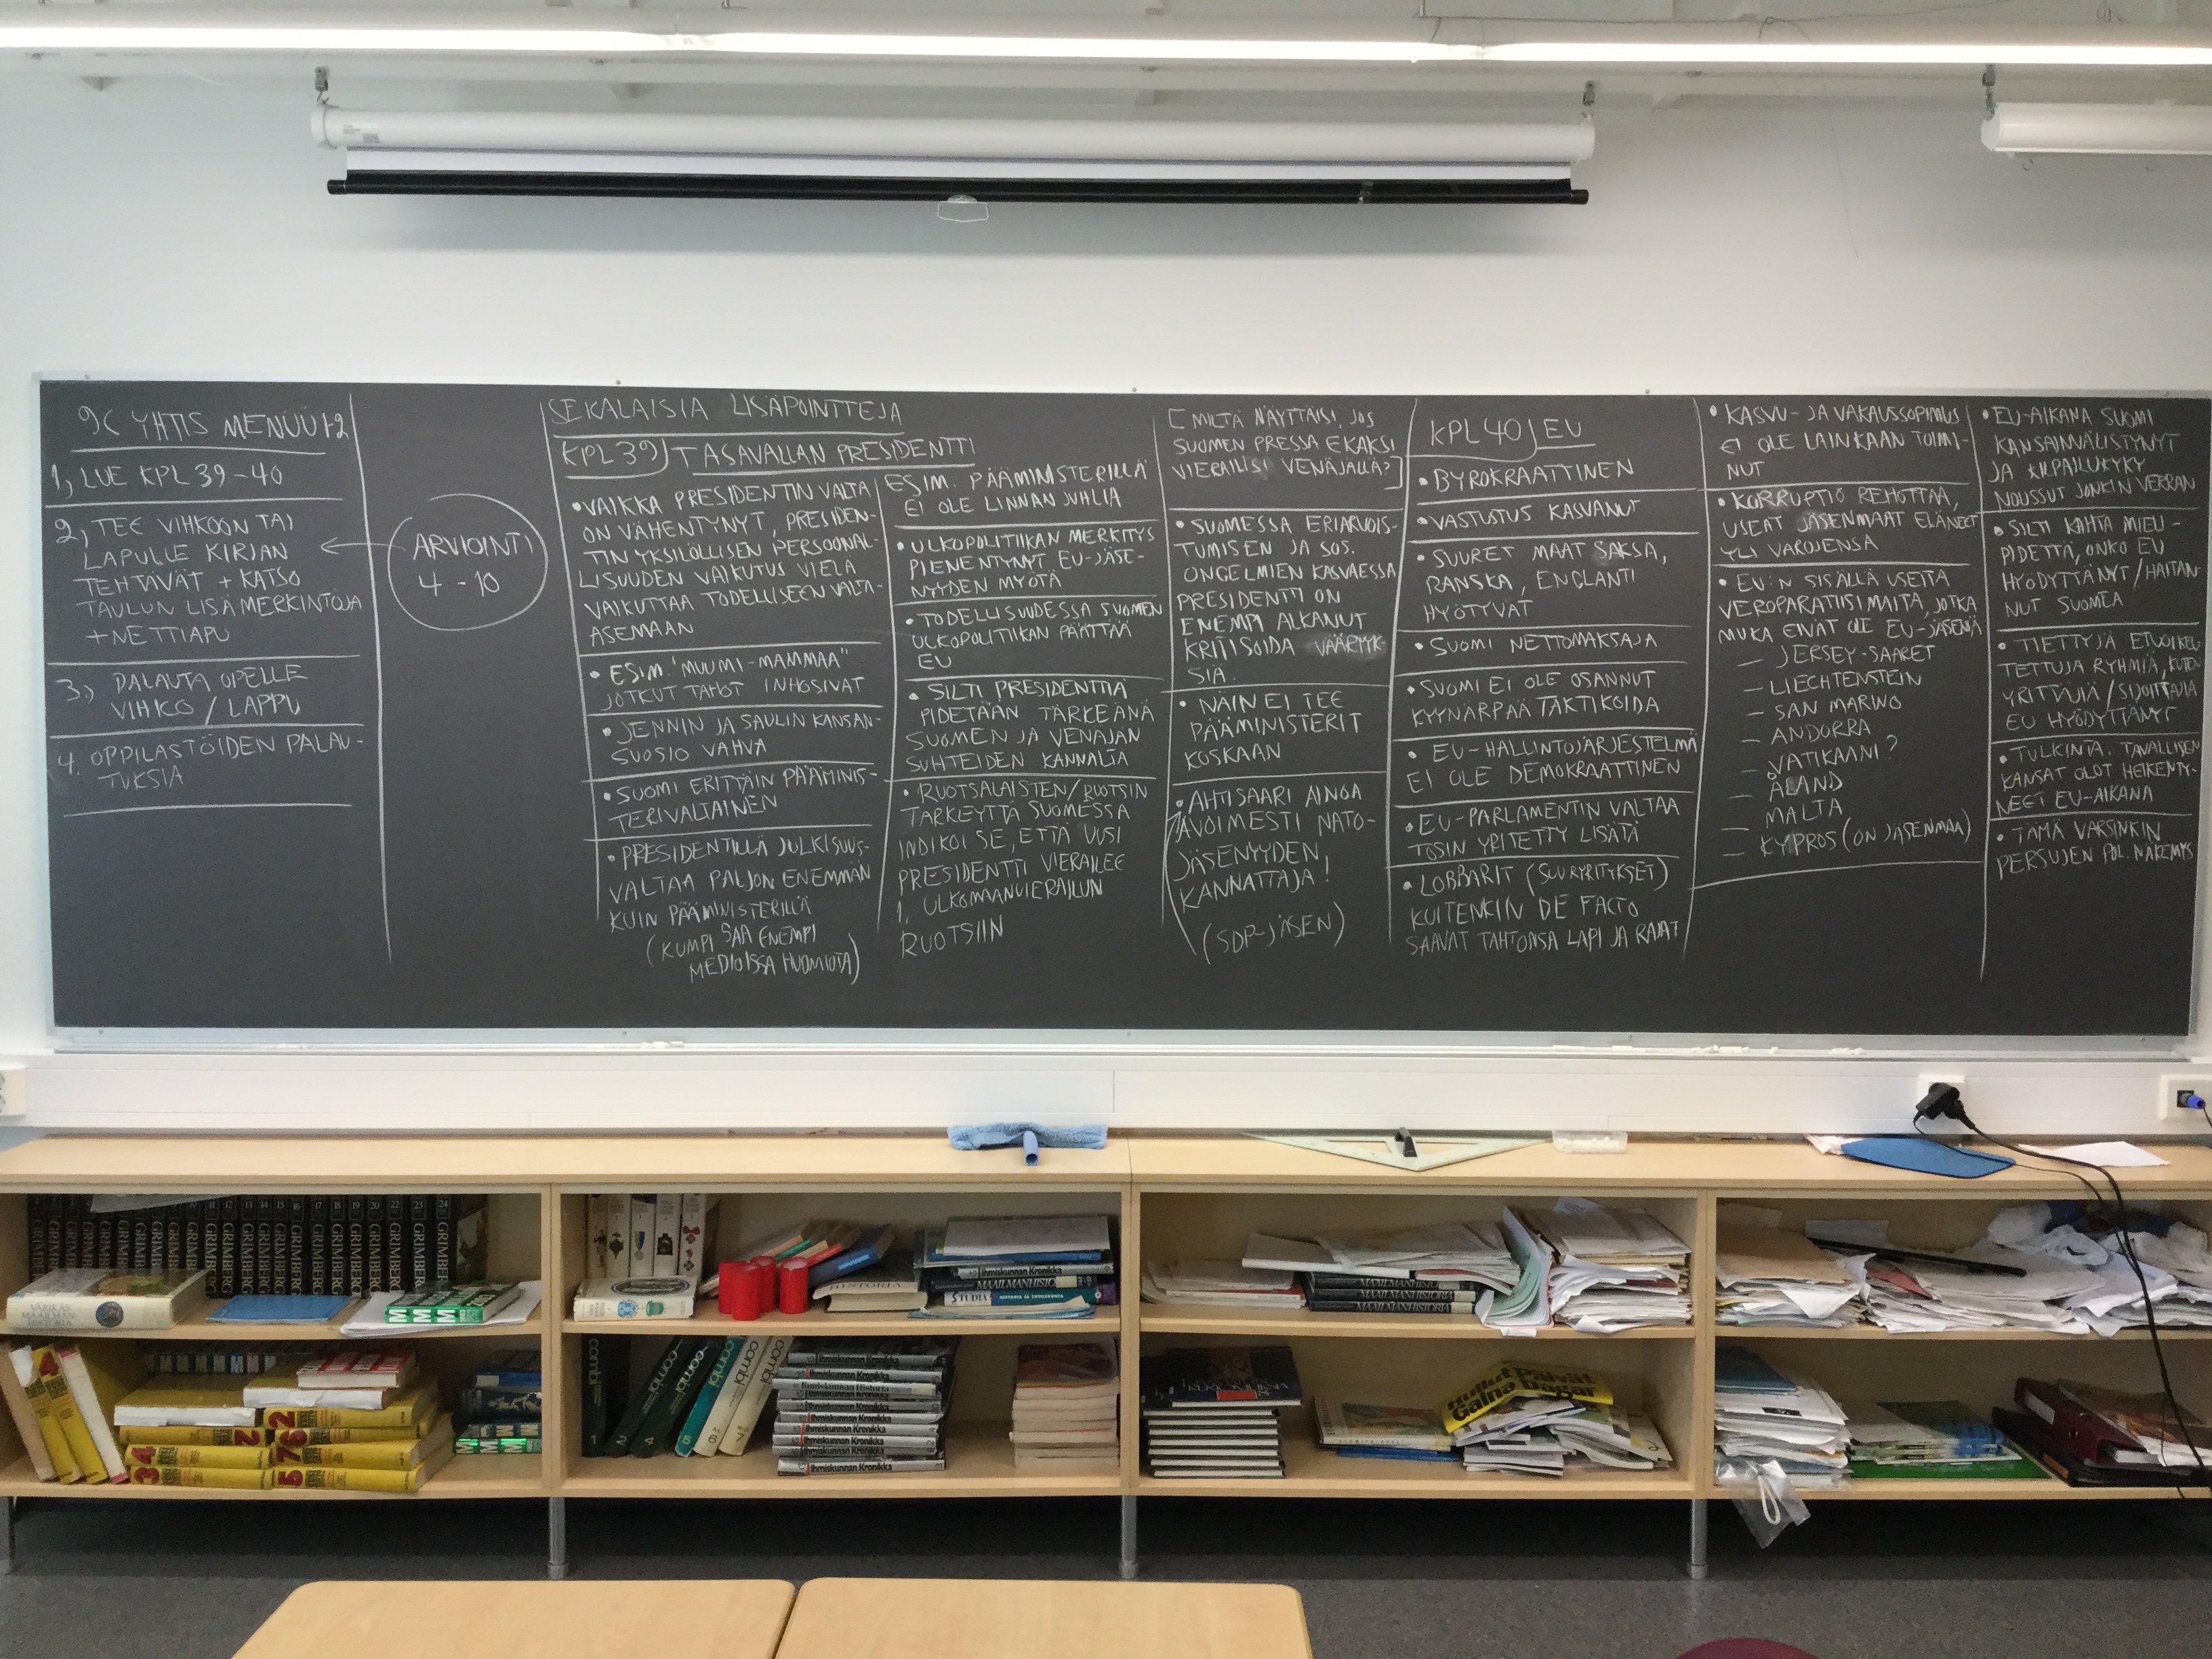 9C YHTIS MENUU 1-2
1, LUE KPL 39-40
2, TEE VIHKOON TAI
LAPULLE KIRJAN
TEHTÄVÄT + KATSO
TAULUN LISÄMERKINTÖJÄ
+ NETTIAPU
3., PALAUTA OPELLE
VIHKO / LAPPU
4. OPPILASTÖIDEN PALAU-
TUKSIA
ARVIOINTI
4 - 10
SEKALAISIA LISÄPOINTTEJA
KPL 39) TASAVALLAN PRESIDENTTI
• VAIKKA PRESIDENTIN VALTA
ON VÄHENTYNYT, PRESIDEN-
TIN YKSILÖLLISEN PERSOONAL-
LISUUDEN VAIKUTUS VIELÄ
VAIKUTTAA TODELLISEEN VALTA-
ASEMAAN
• ESIM. "MUUMI-MAMMAA"
JOTKUT TAHOT INHOSIVAT
• JENNIN JA SAULIN KANSAN-
SUOSIO VAHVA
• SUOMI ERITTÄIN PÄÄMINIS-
TERIVALTAINEN
• PRESIDENTILLÄ JULKISUUS-
VALTAA PALJON ENEMMÄN
KUIN PÄÄMINISTERILLÄ
(KUMPI SAA ENEMPI
MEDIOISSA HUOMIOTA)
ESIM. PÄÄMINISTERILLÄ
EI OLE LINNAN JUHLIA
• ULKOPOLITIIKAN MERKITYS
PIENENTYNYT EU-JÄSE-
NYYDEN MYÖTÄ
• TODELLISUUDESSA SUOMEN
ULKOPOLITIIKAN PÄÄTTÄÄ
EU
• SILTI PRESIDENTTIÄ
PIDETÄÄN TÄRKEÄNÄ
SUOMEN JA VENÄJÄN
SUHTEIDEN KANNALTA
• RUOTSALAISTEN/RUOTSIN
TÄRKEYTTÄ SUOMESSA
INDIKOI SE, ETTÄ UUSI
PRESIDENTTI VIERAILEE
1. ULKOMAANVIERAILUN
RUOTSIIN
[MILTÄ NÄYTTÄISI, JOS
SUOMEN PRESSA EKAKSI
VIERAILISI VENÄJÄLLÄ?]
• SUOMESSA ERIARVOIS-
TUMISEN JA SOS.
ONGELMIEN KASVAESSA
PRESIDENTTI ON
ENEMPI ALKANUT
KRITISOIDA VÄÄRYYK-
SIÄ.
• NÄIN EI TEE
PÄÄMINISTERIT
KOSKAAN
• AHTISAARI AINOA
AVOIMESTI NATO-
JÄSENYYDEN
KANNATTAJA!
(SDP-JÄSEN)
KPL 40) EU
• BYROKRAATTINEN
• VASTUSTUS KASVANUT
• SUURET MAAT SAKSA,
RANSKA, ENGLANTI
HYÖTYVÄT
• SUOMI NETTOMAKSAJA
• SUOMI EI OLE OSANNUT
KYYNÄRPÄÄ TAKTIKOIDA
• EU-HALLINTOJÄRJESTELMÄ
EI OLE DEMOKRAATTINEN
• EU-PARLAMENTIN VALTAA
TOSIN YRITETTY LISÄTÄ
• LOBBARIT (SUURYRITYKSET)
KUITENKIN DE FACTO
SAAVAT TAHTONSA LÄPI JA RAJAT
• KASVU- JA VAKAUSSOPIMUS
EI OLE LAINKAAN TOIMI-
NUT
• KORRUPTIO REHOTTAA,
USEAT JÄSENMAAT ELÄNEET
YLI VAROJENSA
• EU:N SISÄLLÄ USEITA
VEROPARATIISIMAITA, JOTKA
MUKA EIVÄT OLE EU-JÄSENIÄ
— JERSEY-SAARET
— LIECHTENSTEIN
— SAN MARINO
— ANDORRA
— VATIKAANI?
— ÅLAND
— MALTA
— KYPROS (ON JÄSENMAA)
• EU-AIKANA SUOMI
KANSAINVÄLISTYNYT
JA KILPAILUKYKY
NOUSSUT JONKIN VERRAN
• SILTI KAHTA MIELI-
PIDETTÄ, ONKO EU
HYÖDYTTÄNYT/HAITAN-
NUT SUOMEA
• TIETTYJÄ ETUOIKEU-
TETTUJA RYHMIÄ, KUTEN
YRITTÄJIÄ/SIJOITTAJIA
EU HYÖDYTTÄNYT
• TULKINTA. TAVALLISEN
KANSAT OLOT HEIKENTY-
NEET EU-AIKANA
• TÄMÄ VARSINKIN
PERSUJEN POL. NÄKEMYS
11 12 13 14 15 16 17 18 19 20 21 22 23 24
GRIMBERG GRIMBERG GRIMBERG GRIMBERG GRIMBERG GRIMBERG
HISTORIA
Ihmiskunnan Kronikka
MAAILMANHISTORIA
STUDIA
MAAILMANHISTORIA
MAAILMANHISTORIA
MAAILMANHISTORIA
combi combi combi combi combi
Ihmiskunnan Kronikka
Ihmiskunnan Kronikka
Ihmiskunnan Historia
Ihmiskunnan Kronikka
Ihmiskunnan Kronikka
Ihmiskunnan Kronikka
Ihmiskunnan Kronikka
Ihmiskunnan Kronikka
Hullut Päivät
Galna Dagar